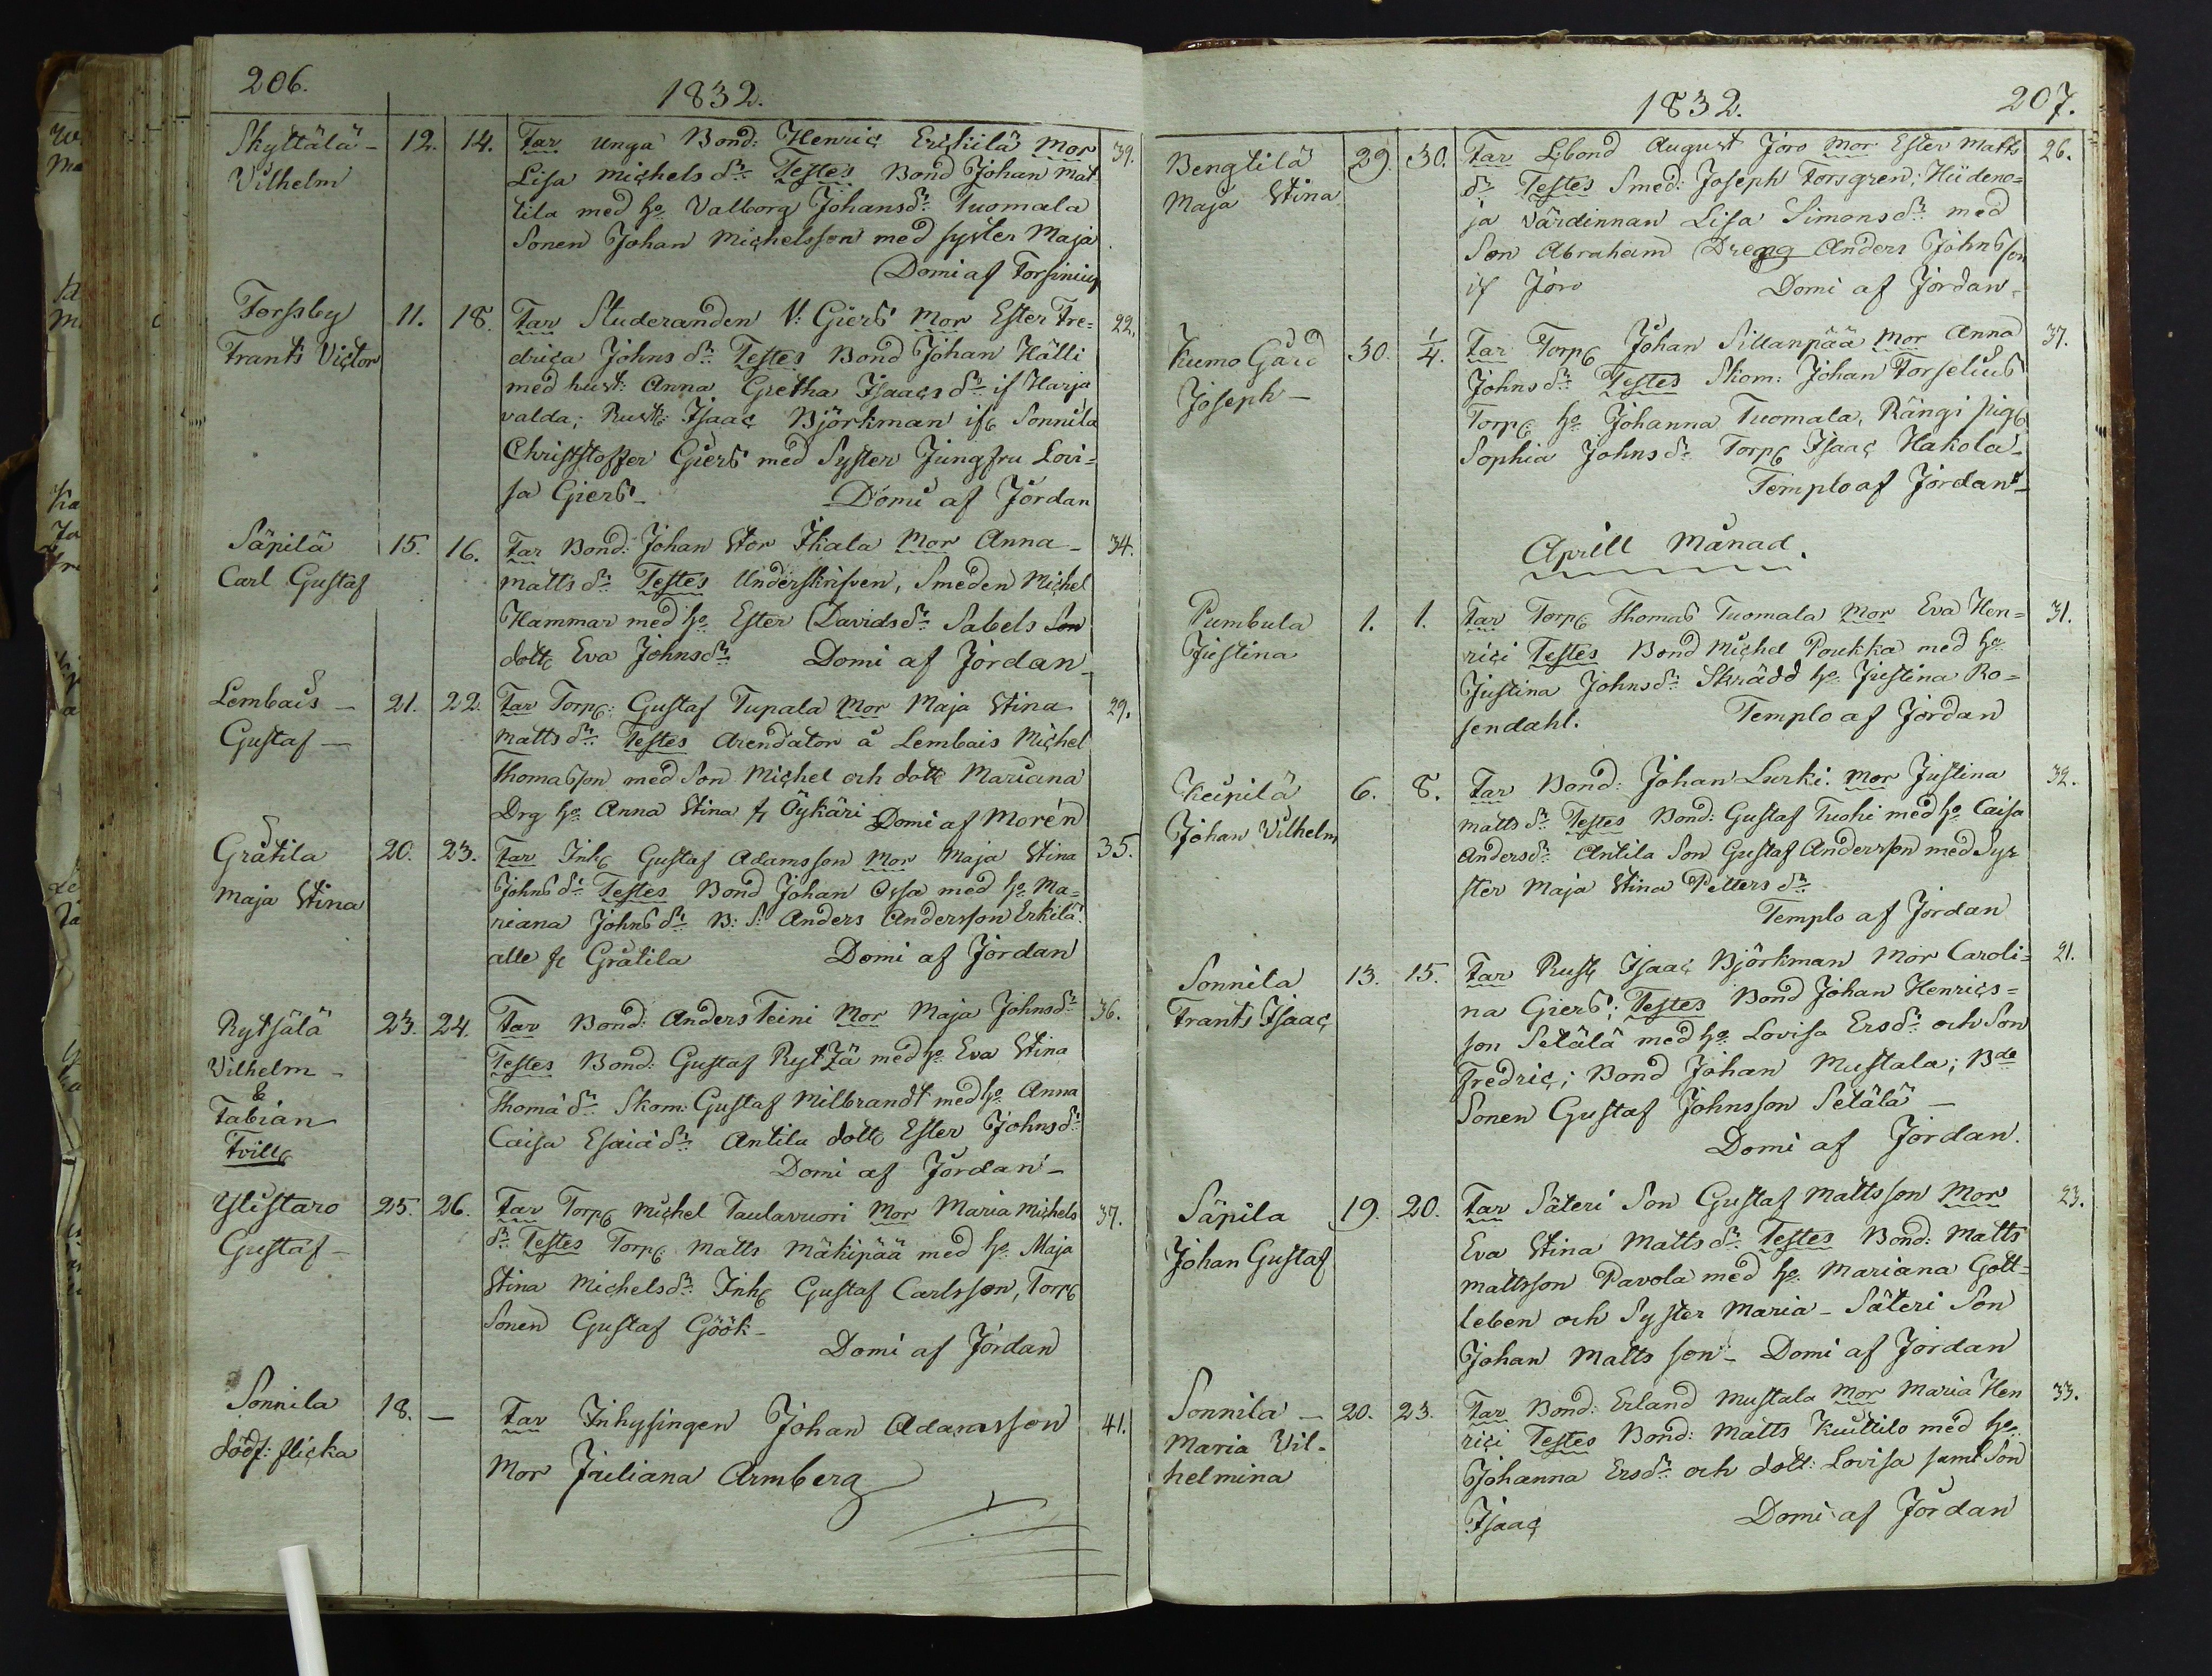 206.
1832.
Skyttälä - 12. 14. Far unga Bond: Henric Erikilä Mor 39.
Vilhelm Lisa Michels dr. Testes Bond Johan Mat-
tila med ho Valborg Johansdr. Tuomala
Sonen Johan Michelsson med syster Maja
Domi af Forsinius
Forssby 11. 18. Far Studeranden V: Giers Mor Ester Fre= 22.
Frants Victor drica Johns dr. Testes Bond Johan Hälli
med hust: Anna Gretha Isaacs dr. if Harja
valda; Rust: Isaac Björkman if Sonnila
Christstoffer Giers med Syster Jungfru Lovi=
sa Giers - Domi af Jordan
Säpilä 15. 16. Far Bond: Johan Stor Ikala Mor Anna - 34.
Carl Gustaf Matts dr. Testes Underskrifven, Smeden Michel
Hammar med ho Ester Davidsdr. Sabels Son
dott Eva Johnsdr. Domi af Jordan -
Lembais - 21. 22. Far Torp: Gustaf Tupala Mor Maja Stina 29.
Gustaf - Matts dr. Testes Arendator å Lembais Michel
Thomasson med Son Michel och dott Mariana
Drg ho Anna Stina f Öykäri Domi af Morén
Gråtila 20. 23. Far Inh Gustaf Adamsson Mor Maja Stina 35.
Maja Stina Johns dr. Testes Bond Johan Ossa med ho Ma=
riana Johns dr. B: S: Anders Andersson Erkilä
alle fr Gråtila Domi af Jordan
Rytsälä 23. 24. Far Bond: Anders Teini Mor Maja Johnsdr. 36.
Vilhelm - Testes Bond: Gustaf Rytzä med ho Eva Stina
& Thoma dr. Skom: Gustaf Milbrandt med ho Anna
Fabian Caisa Esaia dr. Antila dott Ester Johnsdr.
Tvill Domi af Jordan -
Ylistaro 25. 26. Far Torp Michel Taulavuori Mor Maria Michels 37.
Gustaf - dr. Testes Torp: Matts Mäkipää med ho Maja
Stina Michelsdr. Inh Gustaf Carlsson, Torp
Sonen Gustaf Göök - Domi af Jordan
Sonnila 18. - Far Inhysingen Johan Adamsson 41.
dödf: flicka Mor Juliana Armberg
1832. 207.
Bengtilä 29. 30. Far Lbond August Joro Mor Ester Matts 26.
Maja Stina dr. Testes Smed: Joseph Forsgren; Hiideno=
ja Värdinnan Lisa Simonsdr. med
Son Abraham Dreng Anders Johnsson
if Joro Domi af Jordan -
Kumo Gård 30. 1/4. Far Torp Johan Sillanpää Mor Anna 37.
Joseph - Johns dr. Testes Skom: Johan Forselius
Torp ho Johanna Tuomala, Rängi pig
Sophia Johnsdr. Torp Isaac Hakola -
Templo af Jordan -
Aprill Månad.
Pumbula 1. 1. Far Torp Thomas Tuomala Mor Eva Hen= 31.
Justina rici Testes Bond Michel Poukka med ho
Justina Johnsdr. Skrädd ho Justina Ro=
sendahl. Templo af Jordan
Keipilä 6. 8. Far Bond: Johan Lurki. Mor Justina 32.
Johan Vilhelm Matts dr. Testes Bond: Gustaf Tuohi med ho Caisa
Andersdr. Antila Son Gustaf Andersson med Sy=
ster Maja Stina Petters dr.
Templo af Jordan
Sonnila 13. 15. Far Rust Isaac Björkman Mor Caroli= 21.
Frants Isaac na Giers; Testes Bond Johan Henrics=
son Setälä med ho Lovisa Ersdr. och Son
Fredric; Bond Johan Mustala; Bde
Sonen Gustaf Johnsson Setälä -
Domi af Jordan.
Säpilä 19. 20. Far Säteri Son Gustaf Mattsson Mor 23.
Johan Gustaf Eva Stina Mattsdr. Testes Bond: Matts
Mattsson Pavola med ho Mariana Gott=
leben och Syster Maria - Säteri Son
Johan Matts son - Domi af Jordan
Sonnila - 20. 23. Far Bond: Erland Mustala Mor Maria Hen 33.
Maria Vil- rici Testes Bond: Matts Kuittilo med ho
helmina Johanna Ersdr. och dott: Lovisa samt Son
Isaac Domi af Jordan